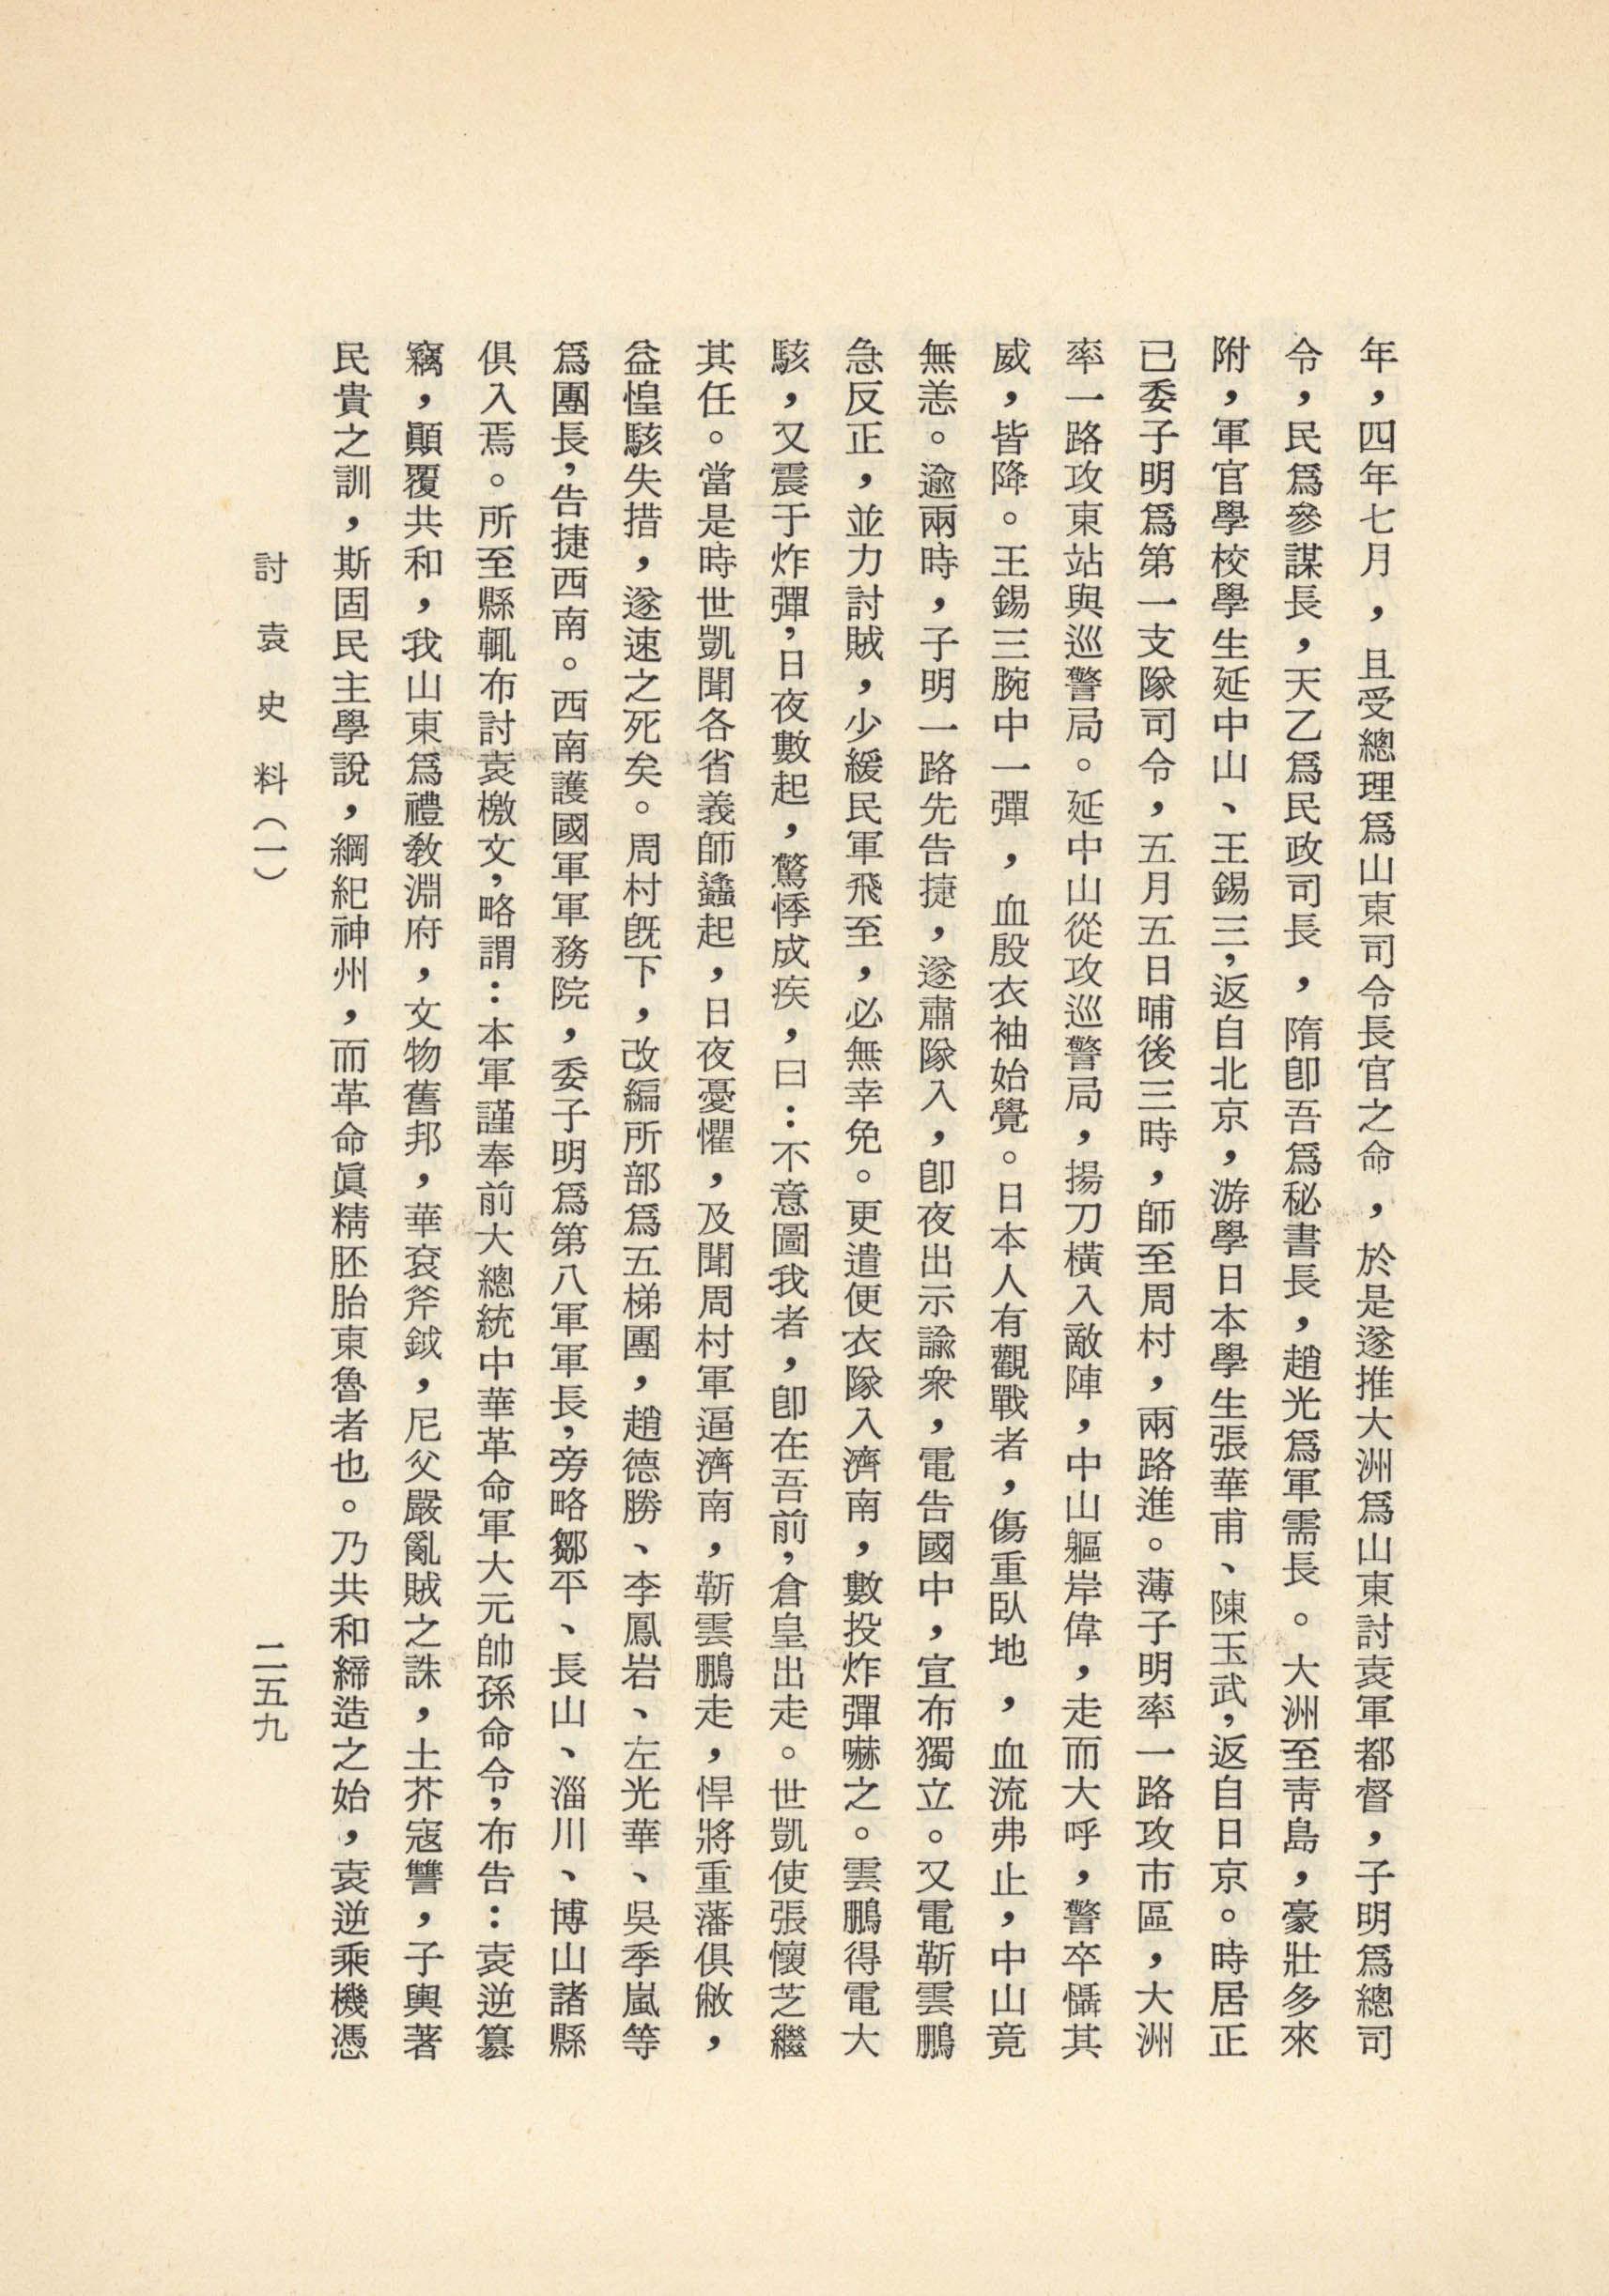 年，四年七月，且受總理爲山東司令長官之命，於是遂推大洲爲山東討袁軍都督，子明爲總司
令，民爲參謀長，天乙爲民政司長，隋卽吾爲秘書長，趙光爲軍需長。大洲至靑島，豪壯多來
附，軍官學校學生延中山、王錫三，返自北京，游學日本學生張華甫、陳玉武，返自日京。時居正
已委子明爲第一支隊司令，五月五日晡後三時，師至周村，兩路進。薄子明率一路攻市區，大洲
率一路攻東站與巡警局。延中山從攻巡警局，揚刀橫入敵陣，中山軀岸偉，走而大呼，警卒懾其
威，皆降。王錫三腕中一彈，血殷衣袖始覺。日本人有觀戰者，傷重臥地，血流弗止，中山竟
無恙。逾兩時，子明一路先告捷，遂肅隊入，卽夜出示諭衆，電告國中，宣布獨立。又電靳雲鵬
急反正，並力討賊，少緩民軍飛至，必無幸免。更遣便衣隊入濟南，數投炸彈嚇之。雲鵬得電大
駭，又震于炸彈，日夜數起，驚悸成疾，曰：不意圖我者，卽在吾前，倉皇出走。世凱使張懷芝繼
其任。當是時世凱聞各省義師蠭起，日夜憂懼，及聞周村軍逼濟南，靳雲鵬走，悍將重藩俱敝，
益惶駭失措，遂速之死矣。周村旣下，改編所部爲五梯團，趙德勝、李鳳岩、左光華、吳季嵐等
爲團長，告捷西南。西南護國軍軍務院，委子明爲第八軍軍長，旁略鄒平、長山、淄川、博山諸縣
俱入焉。所至縣輒布討袁檄文，略謂：本軍謹奉前大總統中華革命軍大元帥孫命令，布告：袁逆篡
竊，顚覆共和，我山東爲禮敎淵府，文物舊邦，華袞斧鉞，尼父嚴亂賊之誅，土芥寇讐，子輿著
民貴之訓，斯固民主學說，綱紀神州，而革命眞精胚胎東魯者也。乃共和締造之始，袁逆乘機憑
討袁史料（一）
二五九